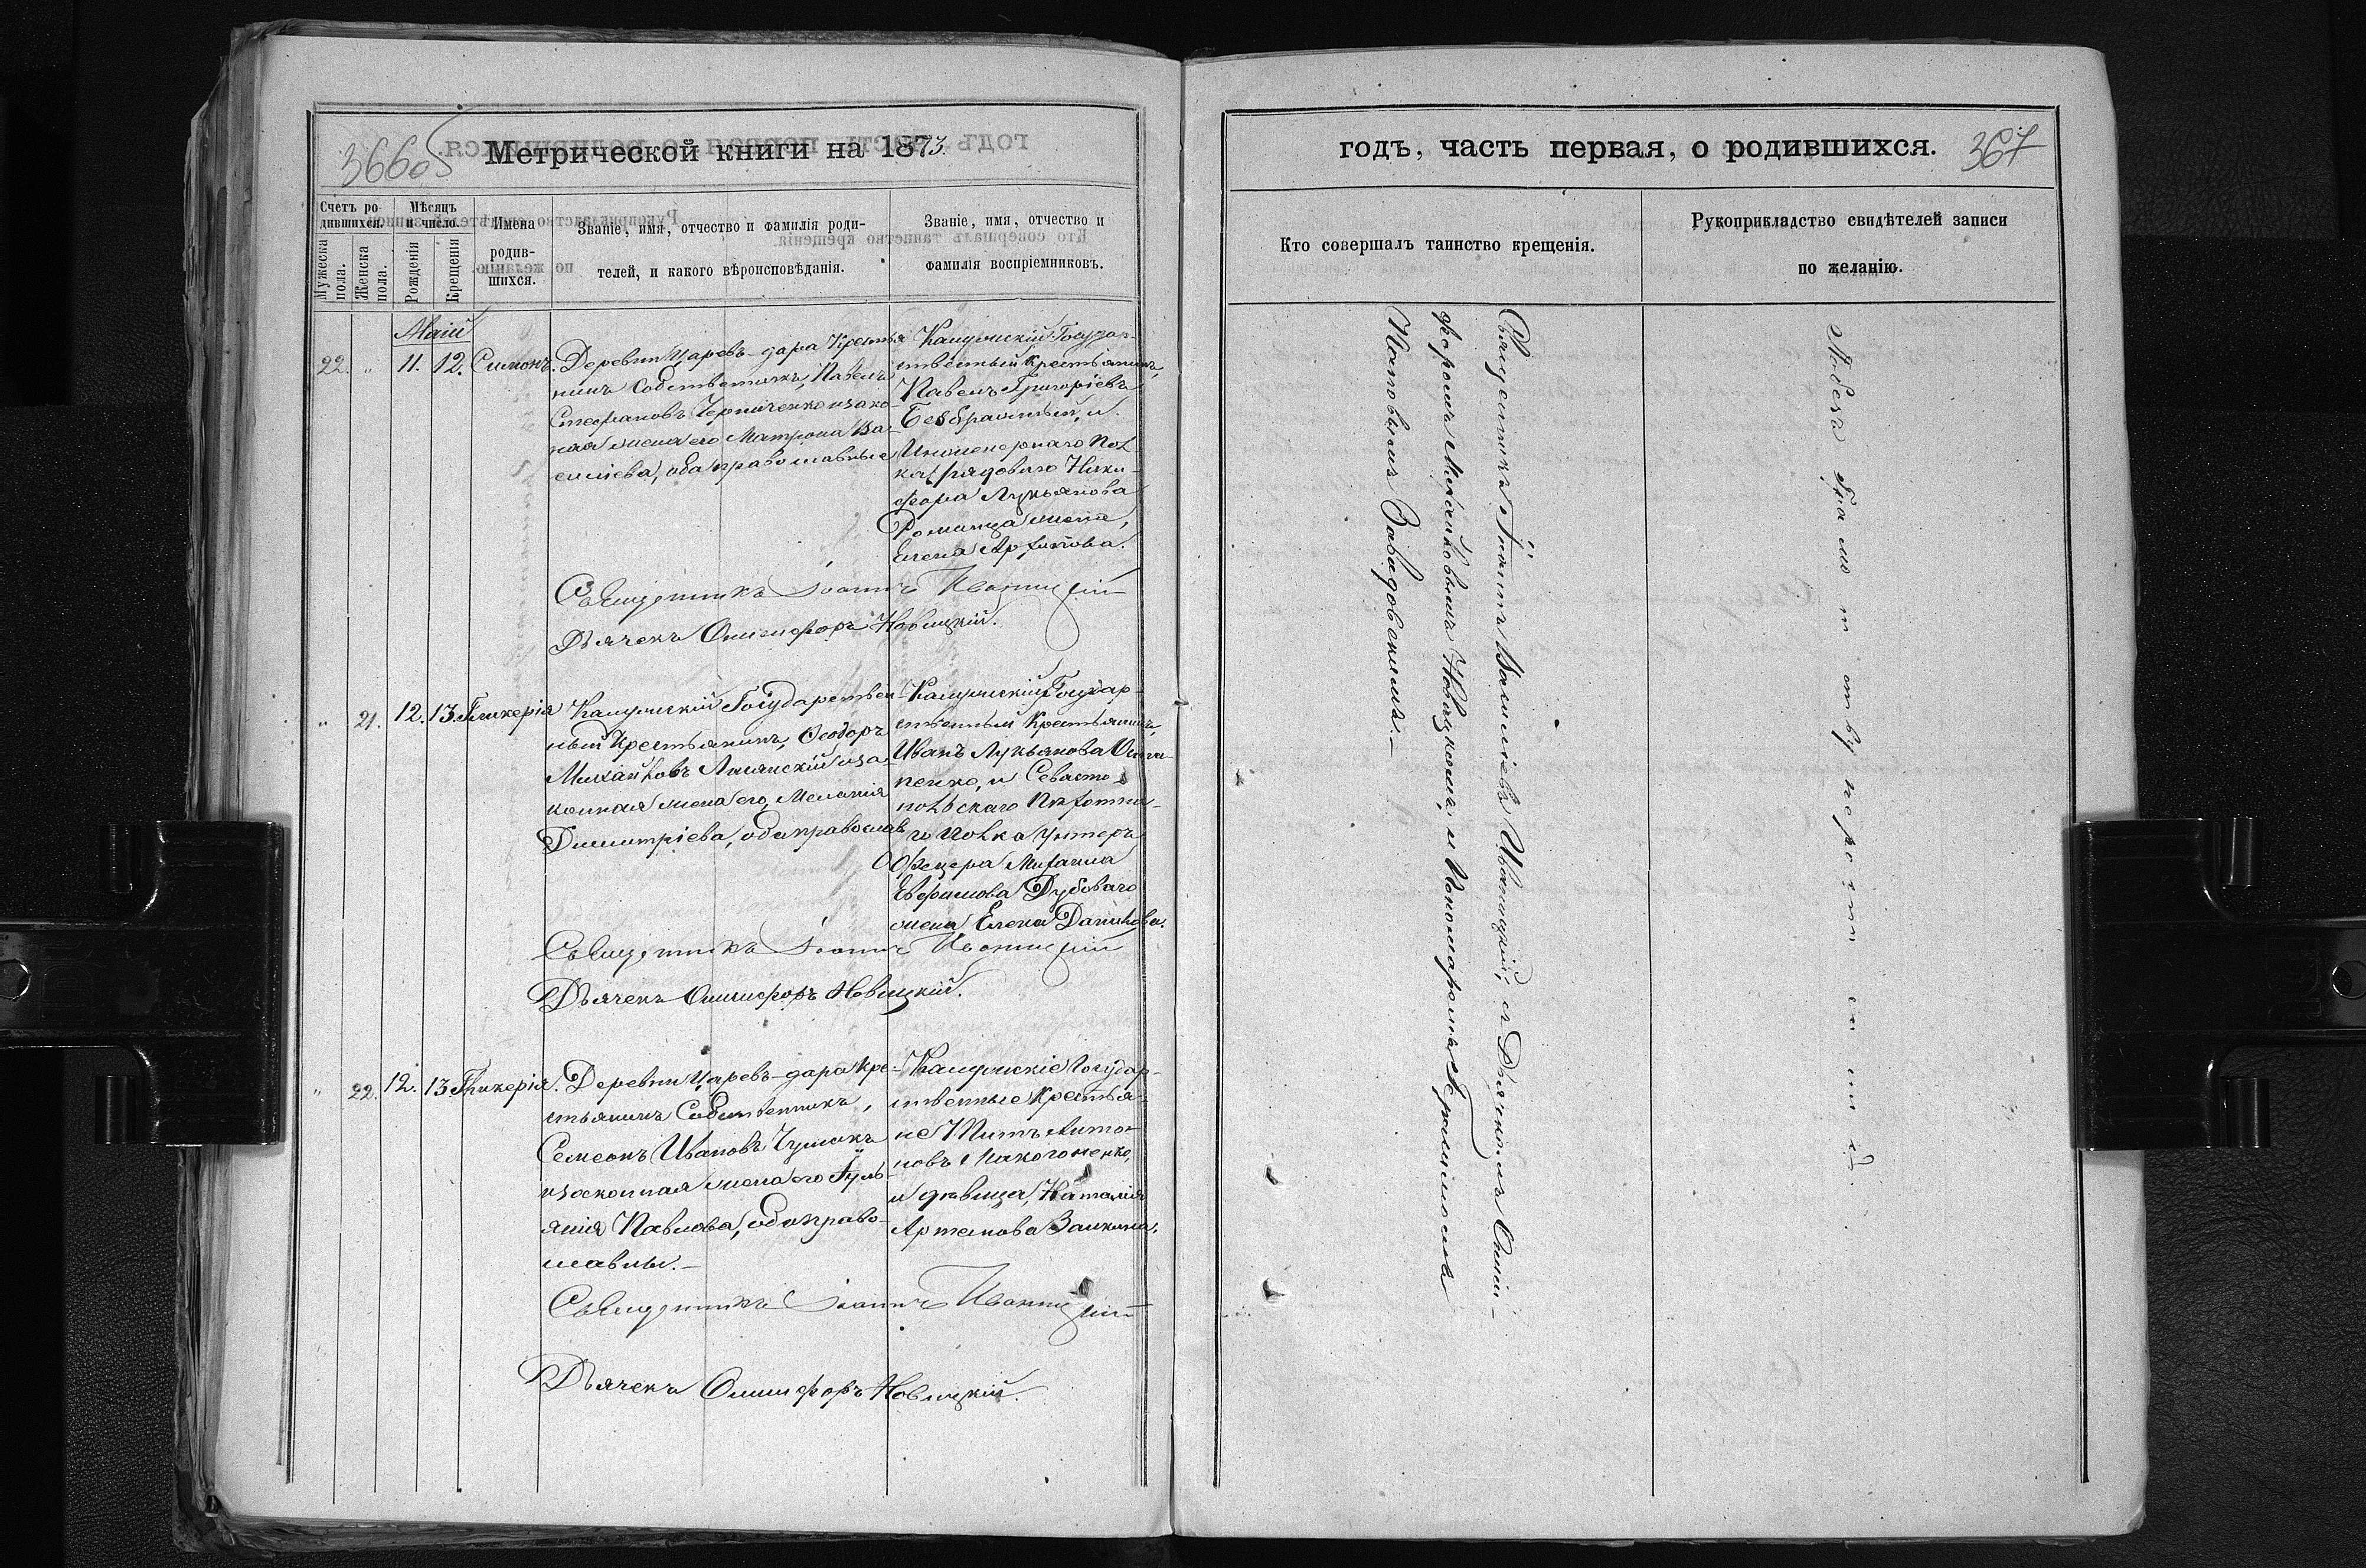 Метрической книги на 1873.
Счетъ ро-
дившихся.
Мужеска
пола.
Женска
пола.
Мѣсяцъ
и число.
Рожденія
Крещенія
Имена
родив-
шихся.
Званіе, имя, отчество и фамилія роди-
телей, и какого вѣроисповѣданія.
Званіе, имя, отчество и
фамилія воспріемниковъ.
Маій
22. " 11. 12. Симонъ.
Деревни Царевъ-дара Крестья
нинъ Собственникъ, Павелъ
Стефановъ Черниченко и зако
ная жена его Матрона Ва-
силіева, оба православные
Государ-
ственный Крестьянинъ,
Павелъ Григоріевъ
и
Инженернаго Пол
ка рядоваго Ники-
фора Лукьянова
жена,
Елена
Священникъ Іоаннъ Иваницкій
Дьячекъ Онисифоръ Новицкій.
" 21. 12. 13. Гликерія
Государствен
ный Крестьянинъ, Ѳеодоръ
Михайловъ и за-
конная жена его, Меланія
Димитріева, оба православ
Государ-
ственный Крестьянинъ,
Иванъ Лукьяновъ
и Севасто-
польскаго Пѣхотна-
го Полка Унтеръ
Офицера Михаила
Евфимова Дубоваго
жена, Елена Данилова.
Священникъ Іоаннъ Иваницкій
Дьячекъ Онисифоръ Новицкій.
" 22. 12. 13 Гликерія.
Деревни Царевъ-дара Кре-
стьянинъ Собственникъ,
Семеонъ Ивановъ Чумакъ
и законная жена его Іулі-
анія Павлова, оба право-
славны.
Государ-
ственные Крестья-
не Титъ Анто-
новъ
и дѣвица, Наталія
Артемова Заикина.
Священникъ Іоаннъ Иваницкій
Дьячекъ Онисифоръ Новицкій.
годъ, часть первая, о родившихся. 367
Кто совершалъ таинство крещенія.
Рукоприкладство свидѣтелей записи
по желанію.
Священникъ Іоаннъ Василіевъ Иваницкій, съ Дьячкомъ Ониси-
форомъ Михайловымъ Новицкимъ, и Пономаремъ Герасимомъ
Завадовскимъ.